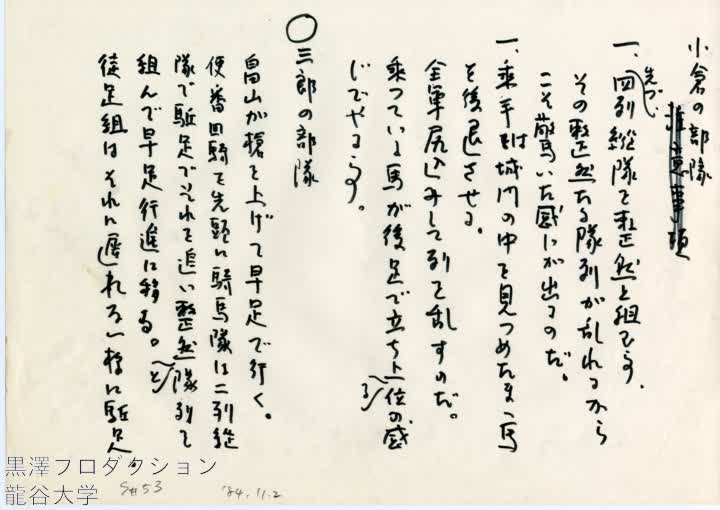 小倉の部隊
注意事項
一、先づ四列縦隊で整然と組ます。
その整然たる隊列が乱れるから
こそ驚いた感じが出るのだ。
一、乗手は城門の中を見つめたまゝ馬
を後退させる。
全軍尻込みして列を乱すのだ。
乗っている馬が後足で立ち上る位の感
じでやらす。
○三郎の部隊
畠山が槍を上げて早足で行く。
使番四騎を先頭に騎馬隊は二列縦
隊で駈足でそれを追い整然と隊列を
組んで早足行進に移る。
徒足組はそれに遅れない様に駈足
S#53
'84.11.2
黒澤プロダクション
龍谷大学